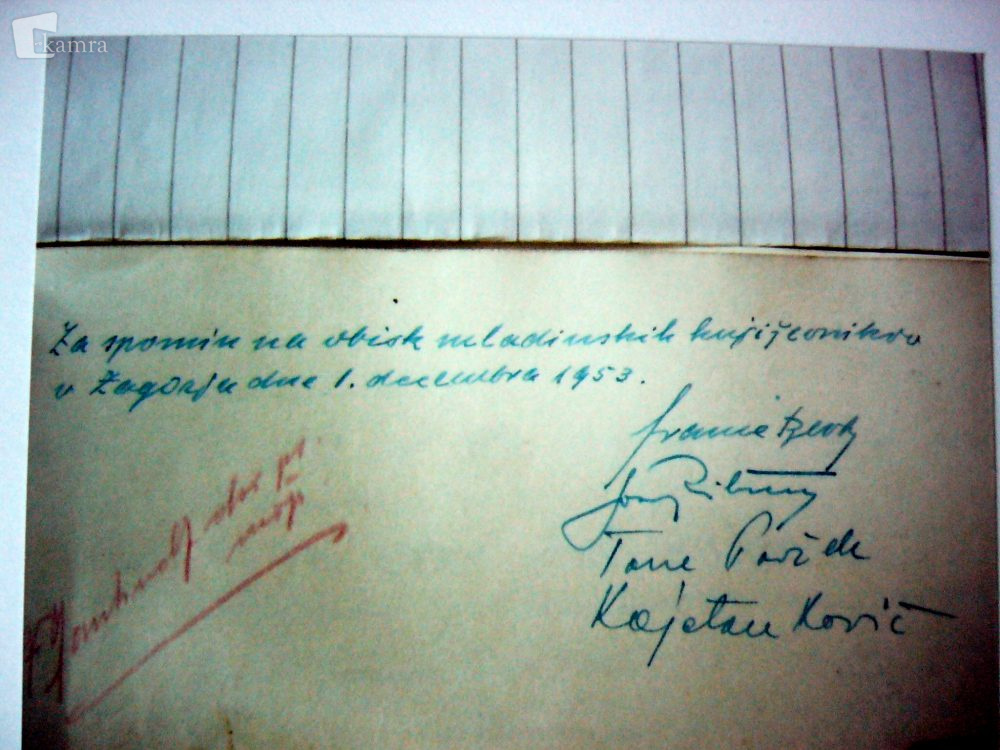 kamra
Za spomin na obisk mladinskih književnikov
v Zagorju dne 1. decembra 1953.
France Bevk
Tone Pavček
Kajetan Kovič